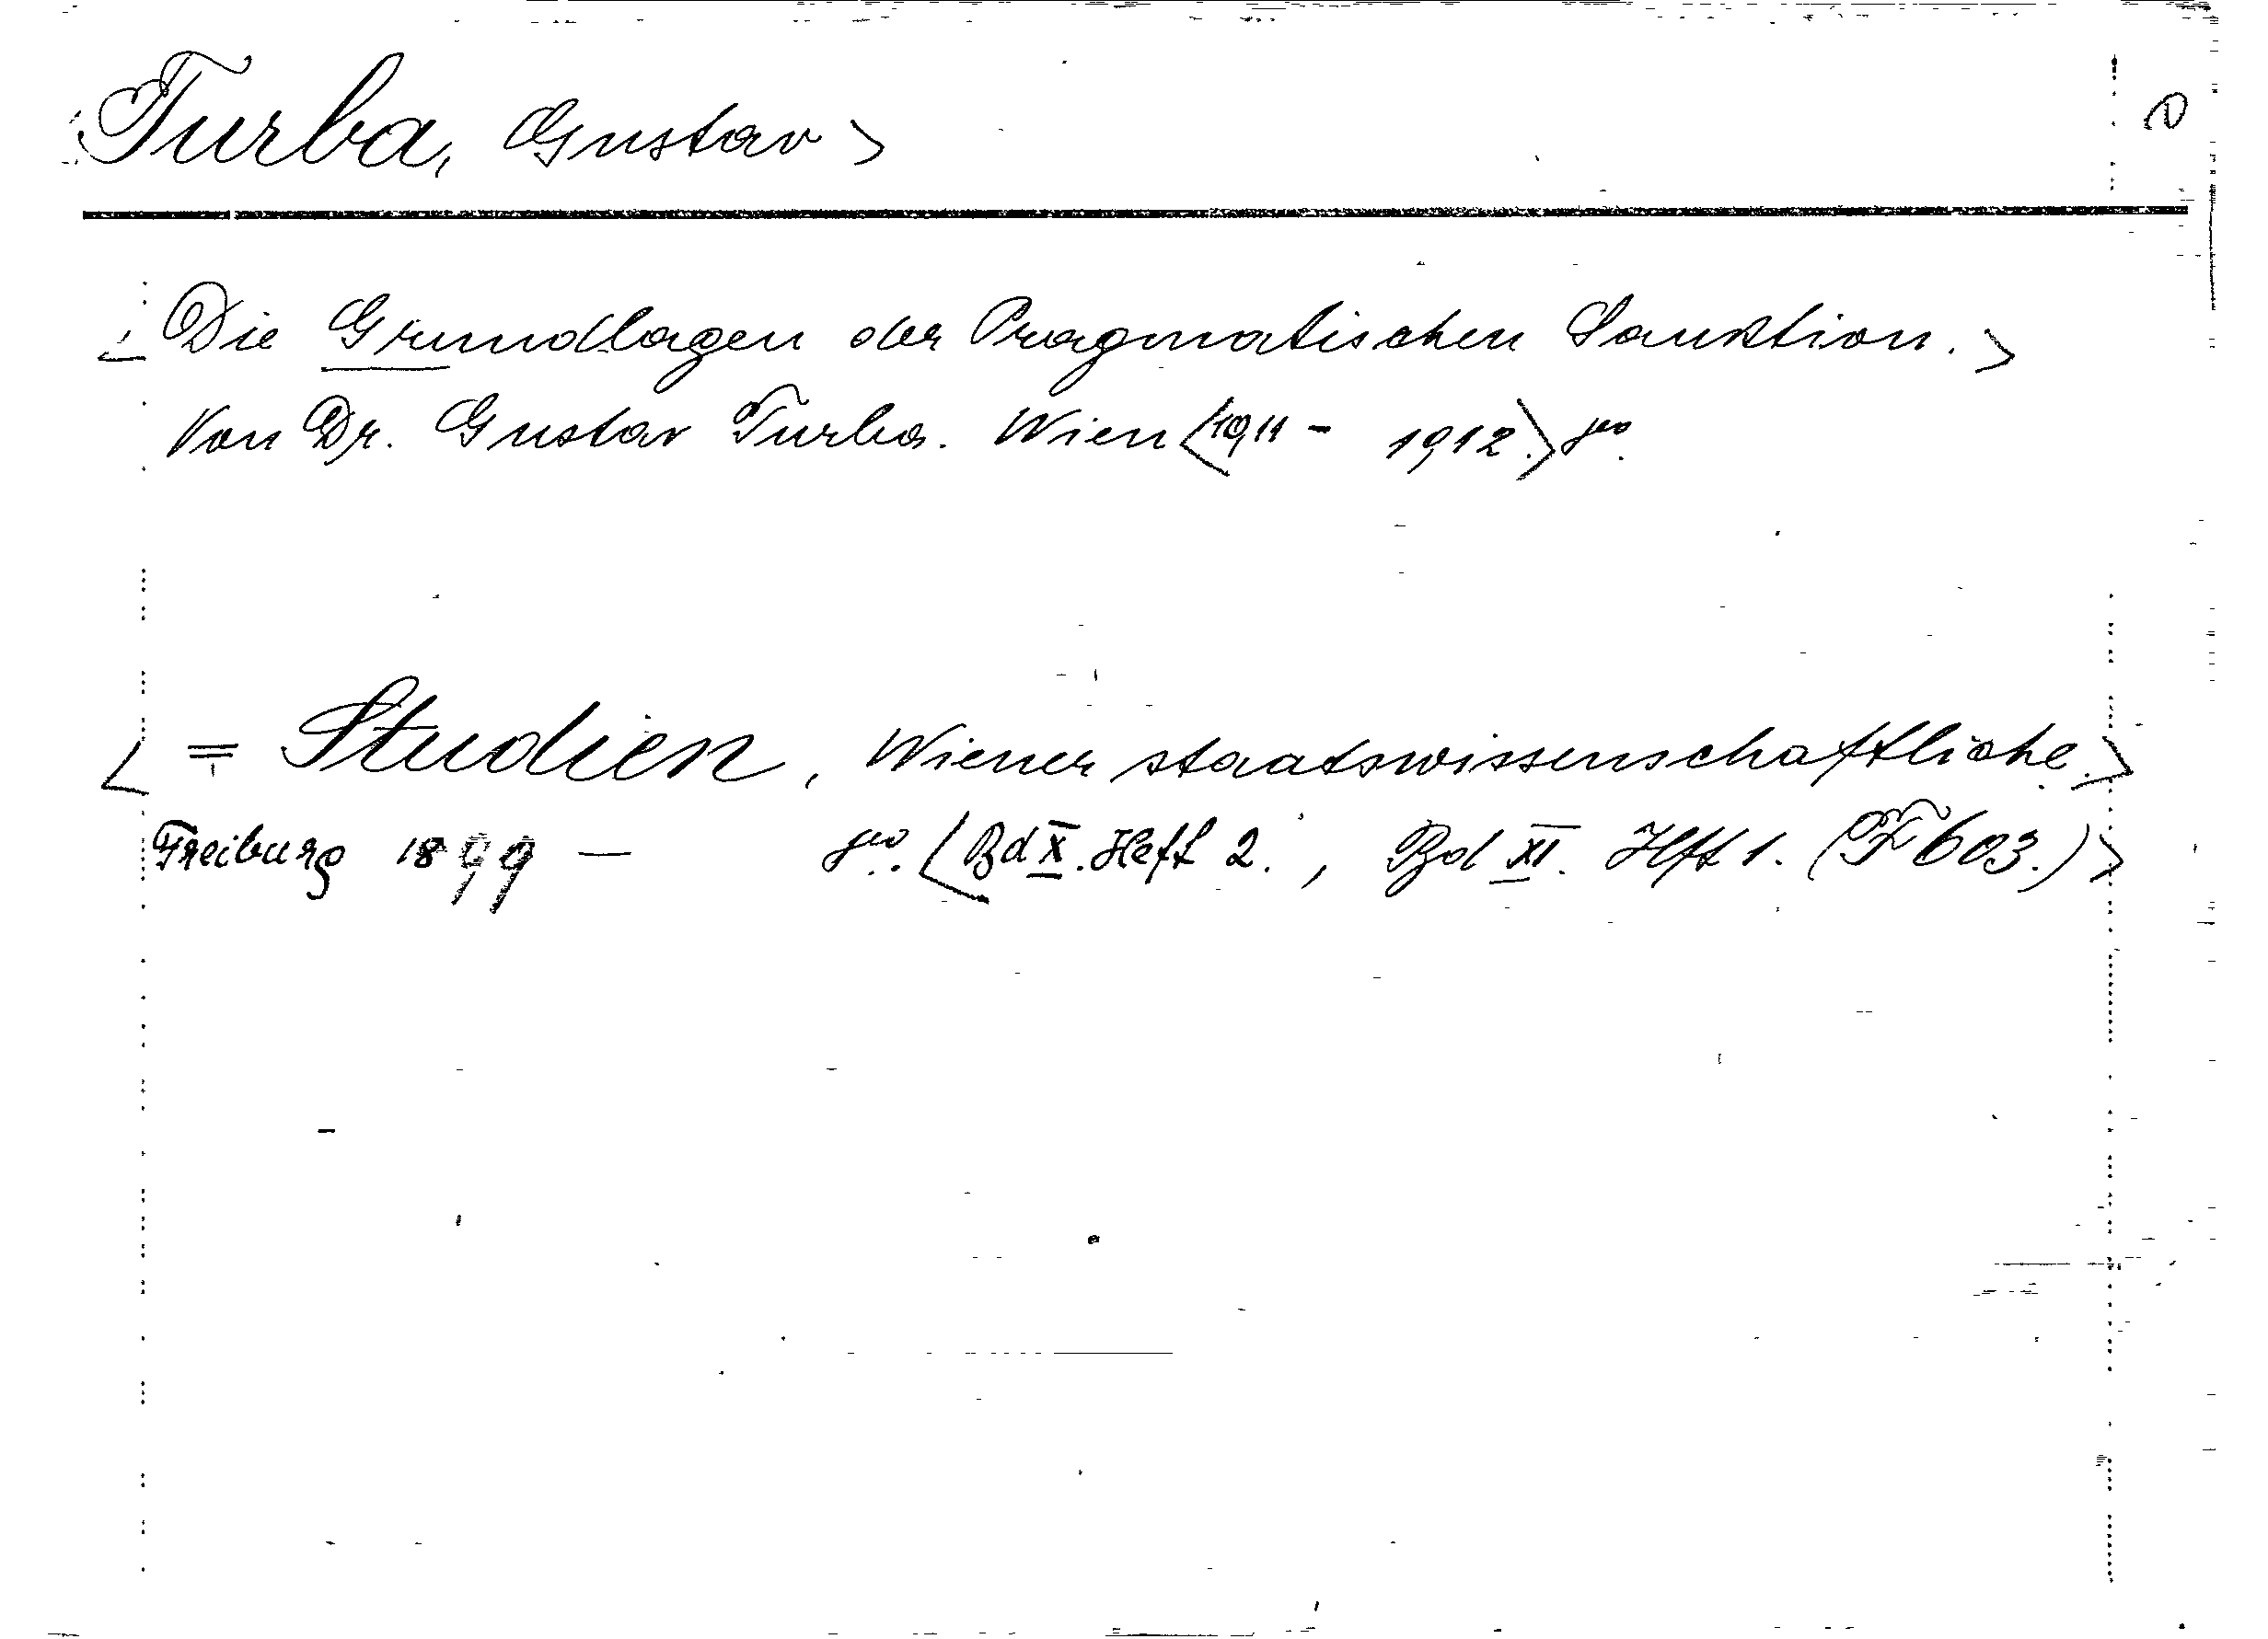 Turba, Gustav >
Die Grundlagen der Pragmatischen Sanktion. >
Von Dr. Gustav Turba. Wien <1911 - 1912.> 8vo.
< = Studien, Wiener staatswissenschaftliche.>
Freiburg 1899 — 8vo. <Bd X. Heft 2., Bd XI. Hft 1. (F 603.)>